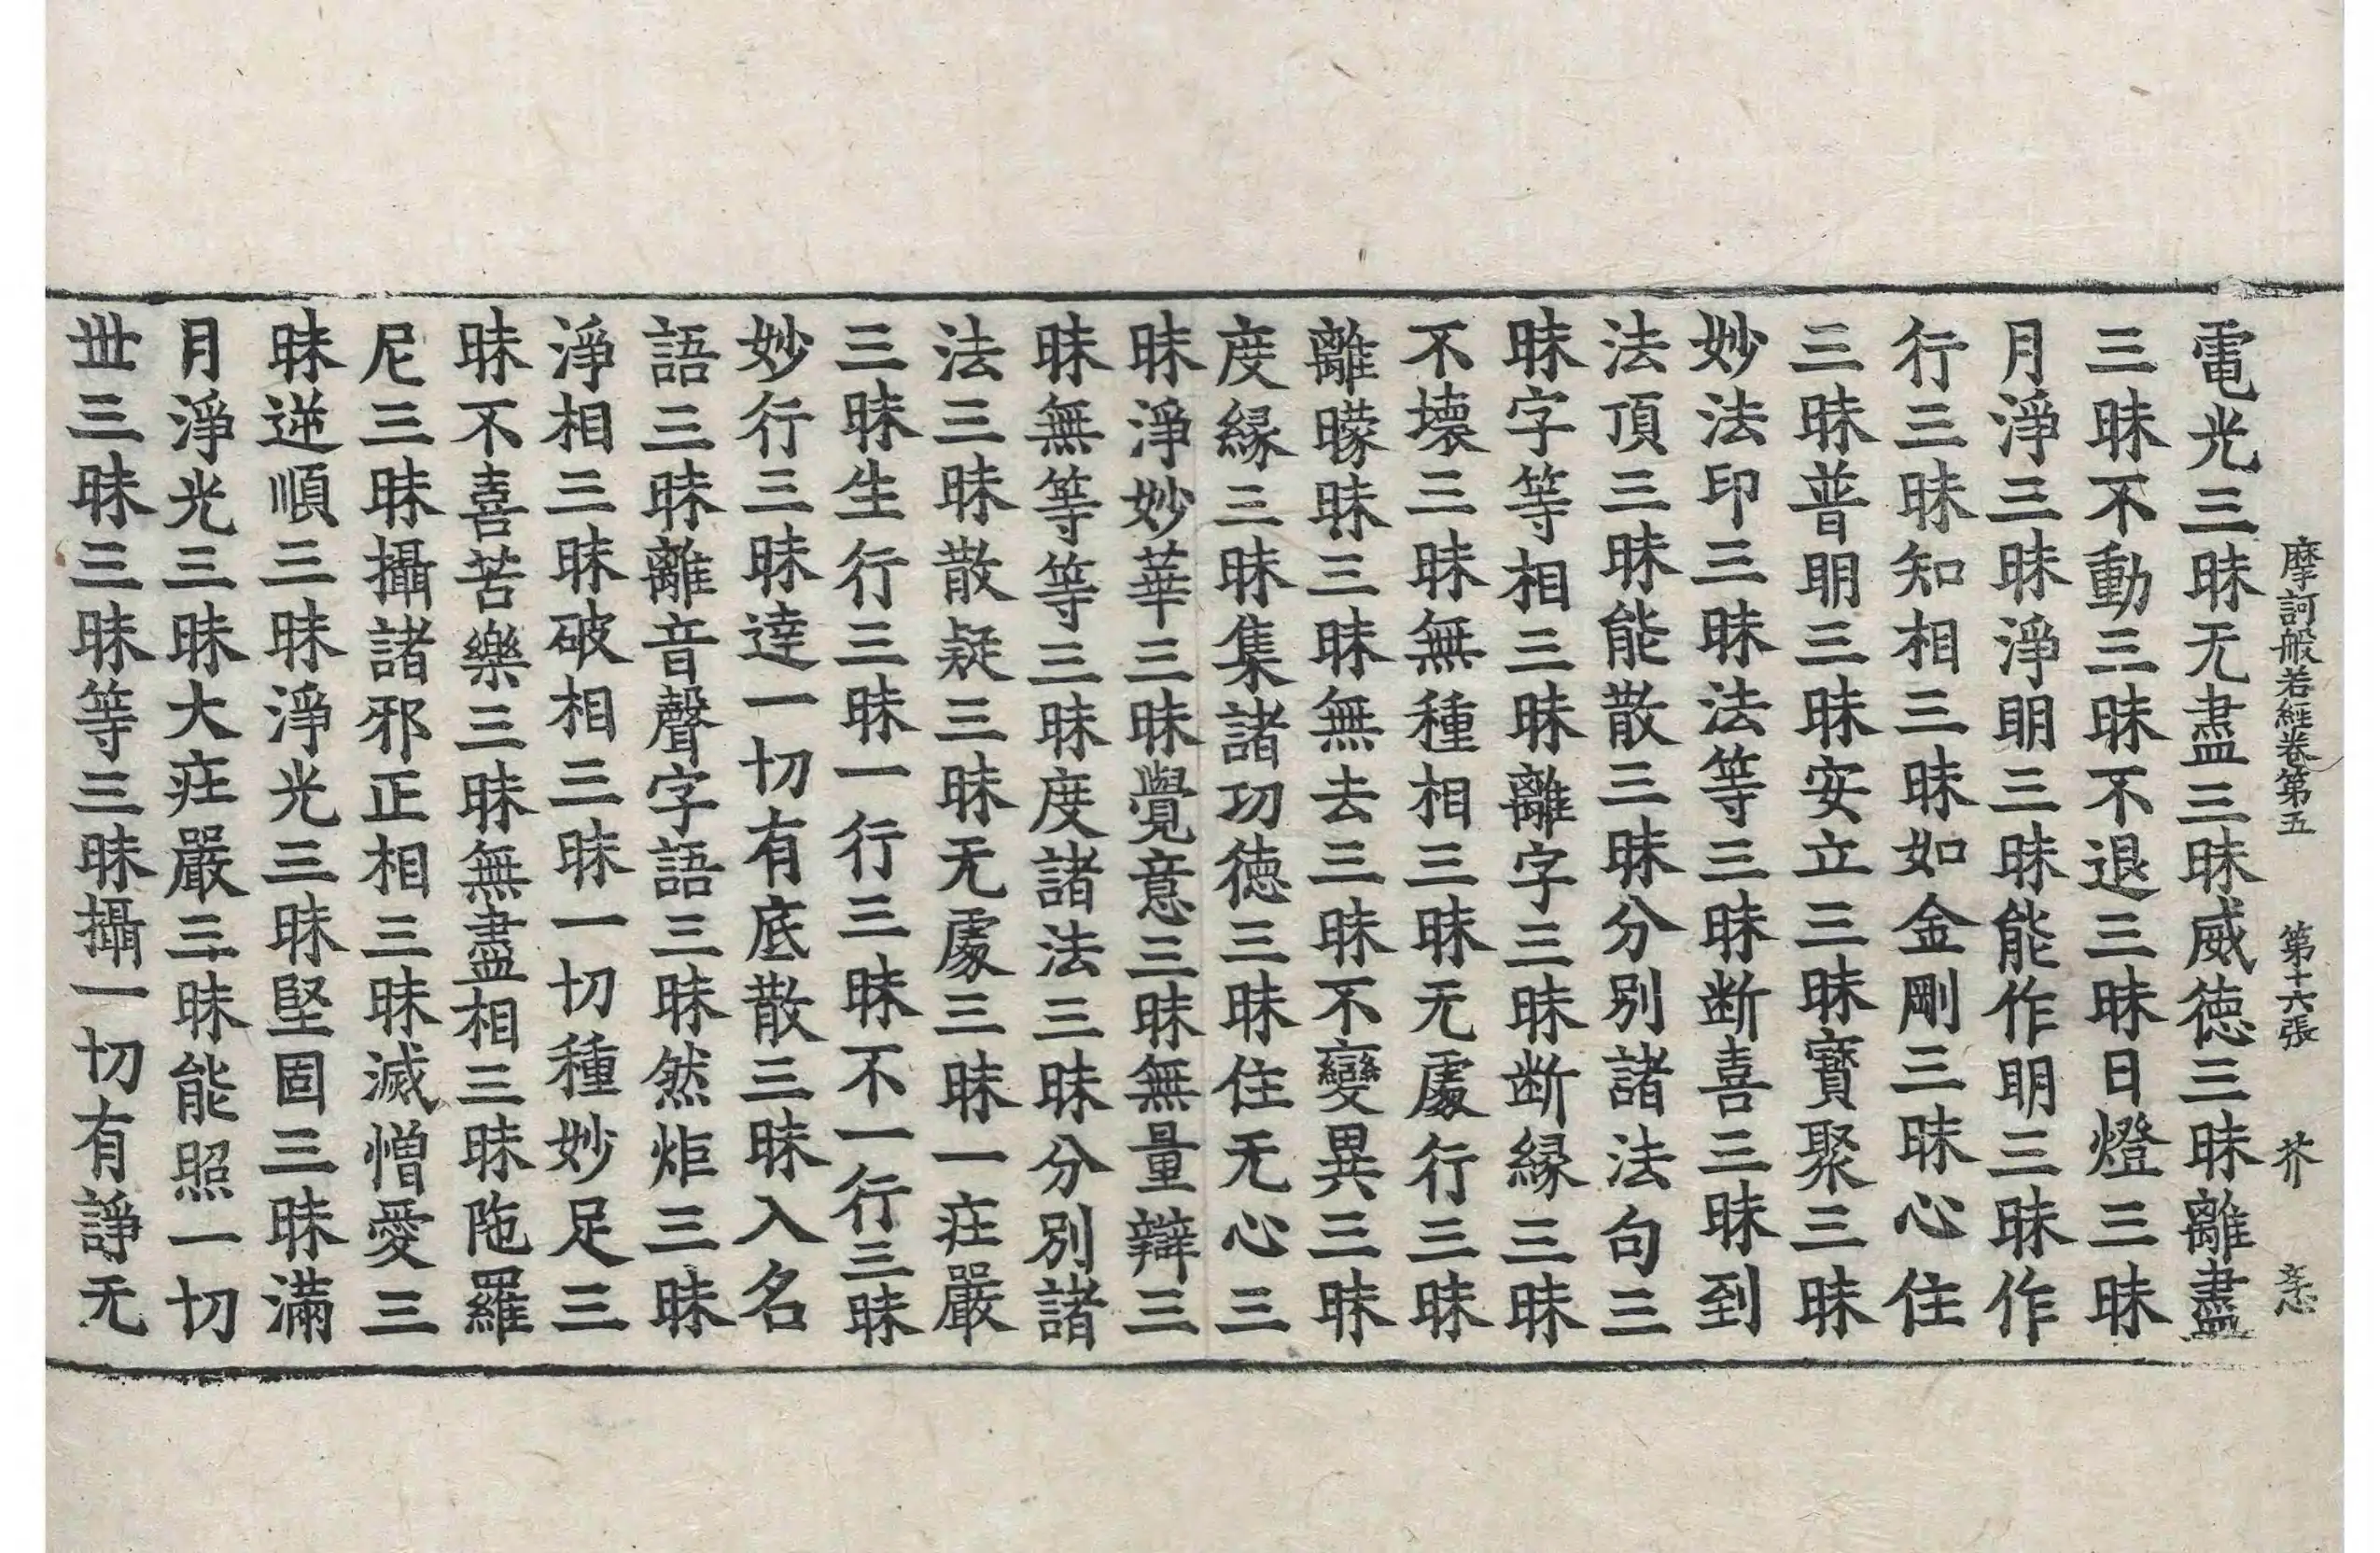 摩訶般若經卷第五　第十六張　芥　志
電光三昧无盡三昧威德三昧離盡
三昧不動三昧不退三昧日燈三昧
月淨三昧淨明三昧能作明三昧作
行三昧知相三昧如金剛三昧心住
三昧普明三昧安立三昧寶聚三昧
妙法印三昧法等三昧断喜三昧到
法頂三昧能散三昧分別諸法句三
昧字等相三昧離字三昧断緣三昧
不壞三昧無種相三昧无處行三昧
離曚昧三昧無去三昧不變異三昧
度緣三昧集諸功德三昧住无心三
昧淨妙華三昧覺意三昧無量辯三
昧無等等三昧度諸法三昧分別諸
法三昧散疑三昧无處三昧一莊嚴
三昧生行三昧一行三昧不一行三昧
妙行三昧達一切有底散三昧入名
語三昧離音聲字語三昧然炬三昧
淨相三昧破相三昧一切種妙足三
昧不喜苦樂三昧無盡相三昧陁羅
尼三昧攝諸邪正相三昧滅憎愛三
昧逆順三昧淨光三昧堅固三昧滿
月淨光三昧大莊嚴三昧能照一切
丗三昧三昧等三昧攝一切有諍无